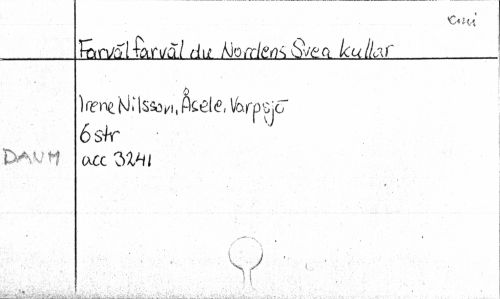 emi
Farväl farväl du Nordens Svea kullar
Irene Nilsson, Åsele, Varpsjö
6 str
DAUM acc 3241